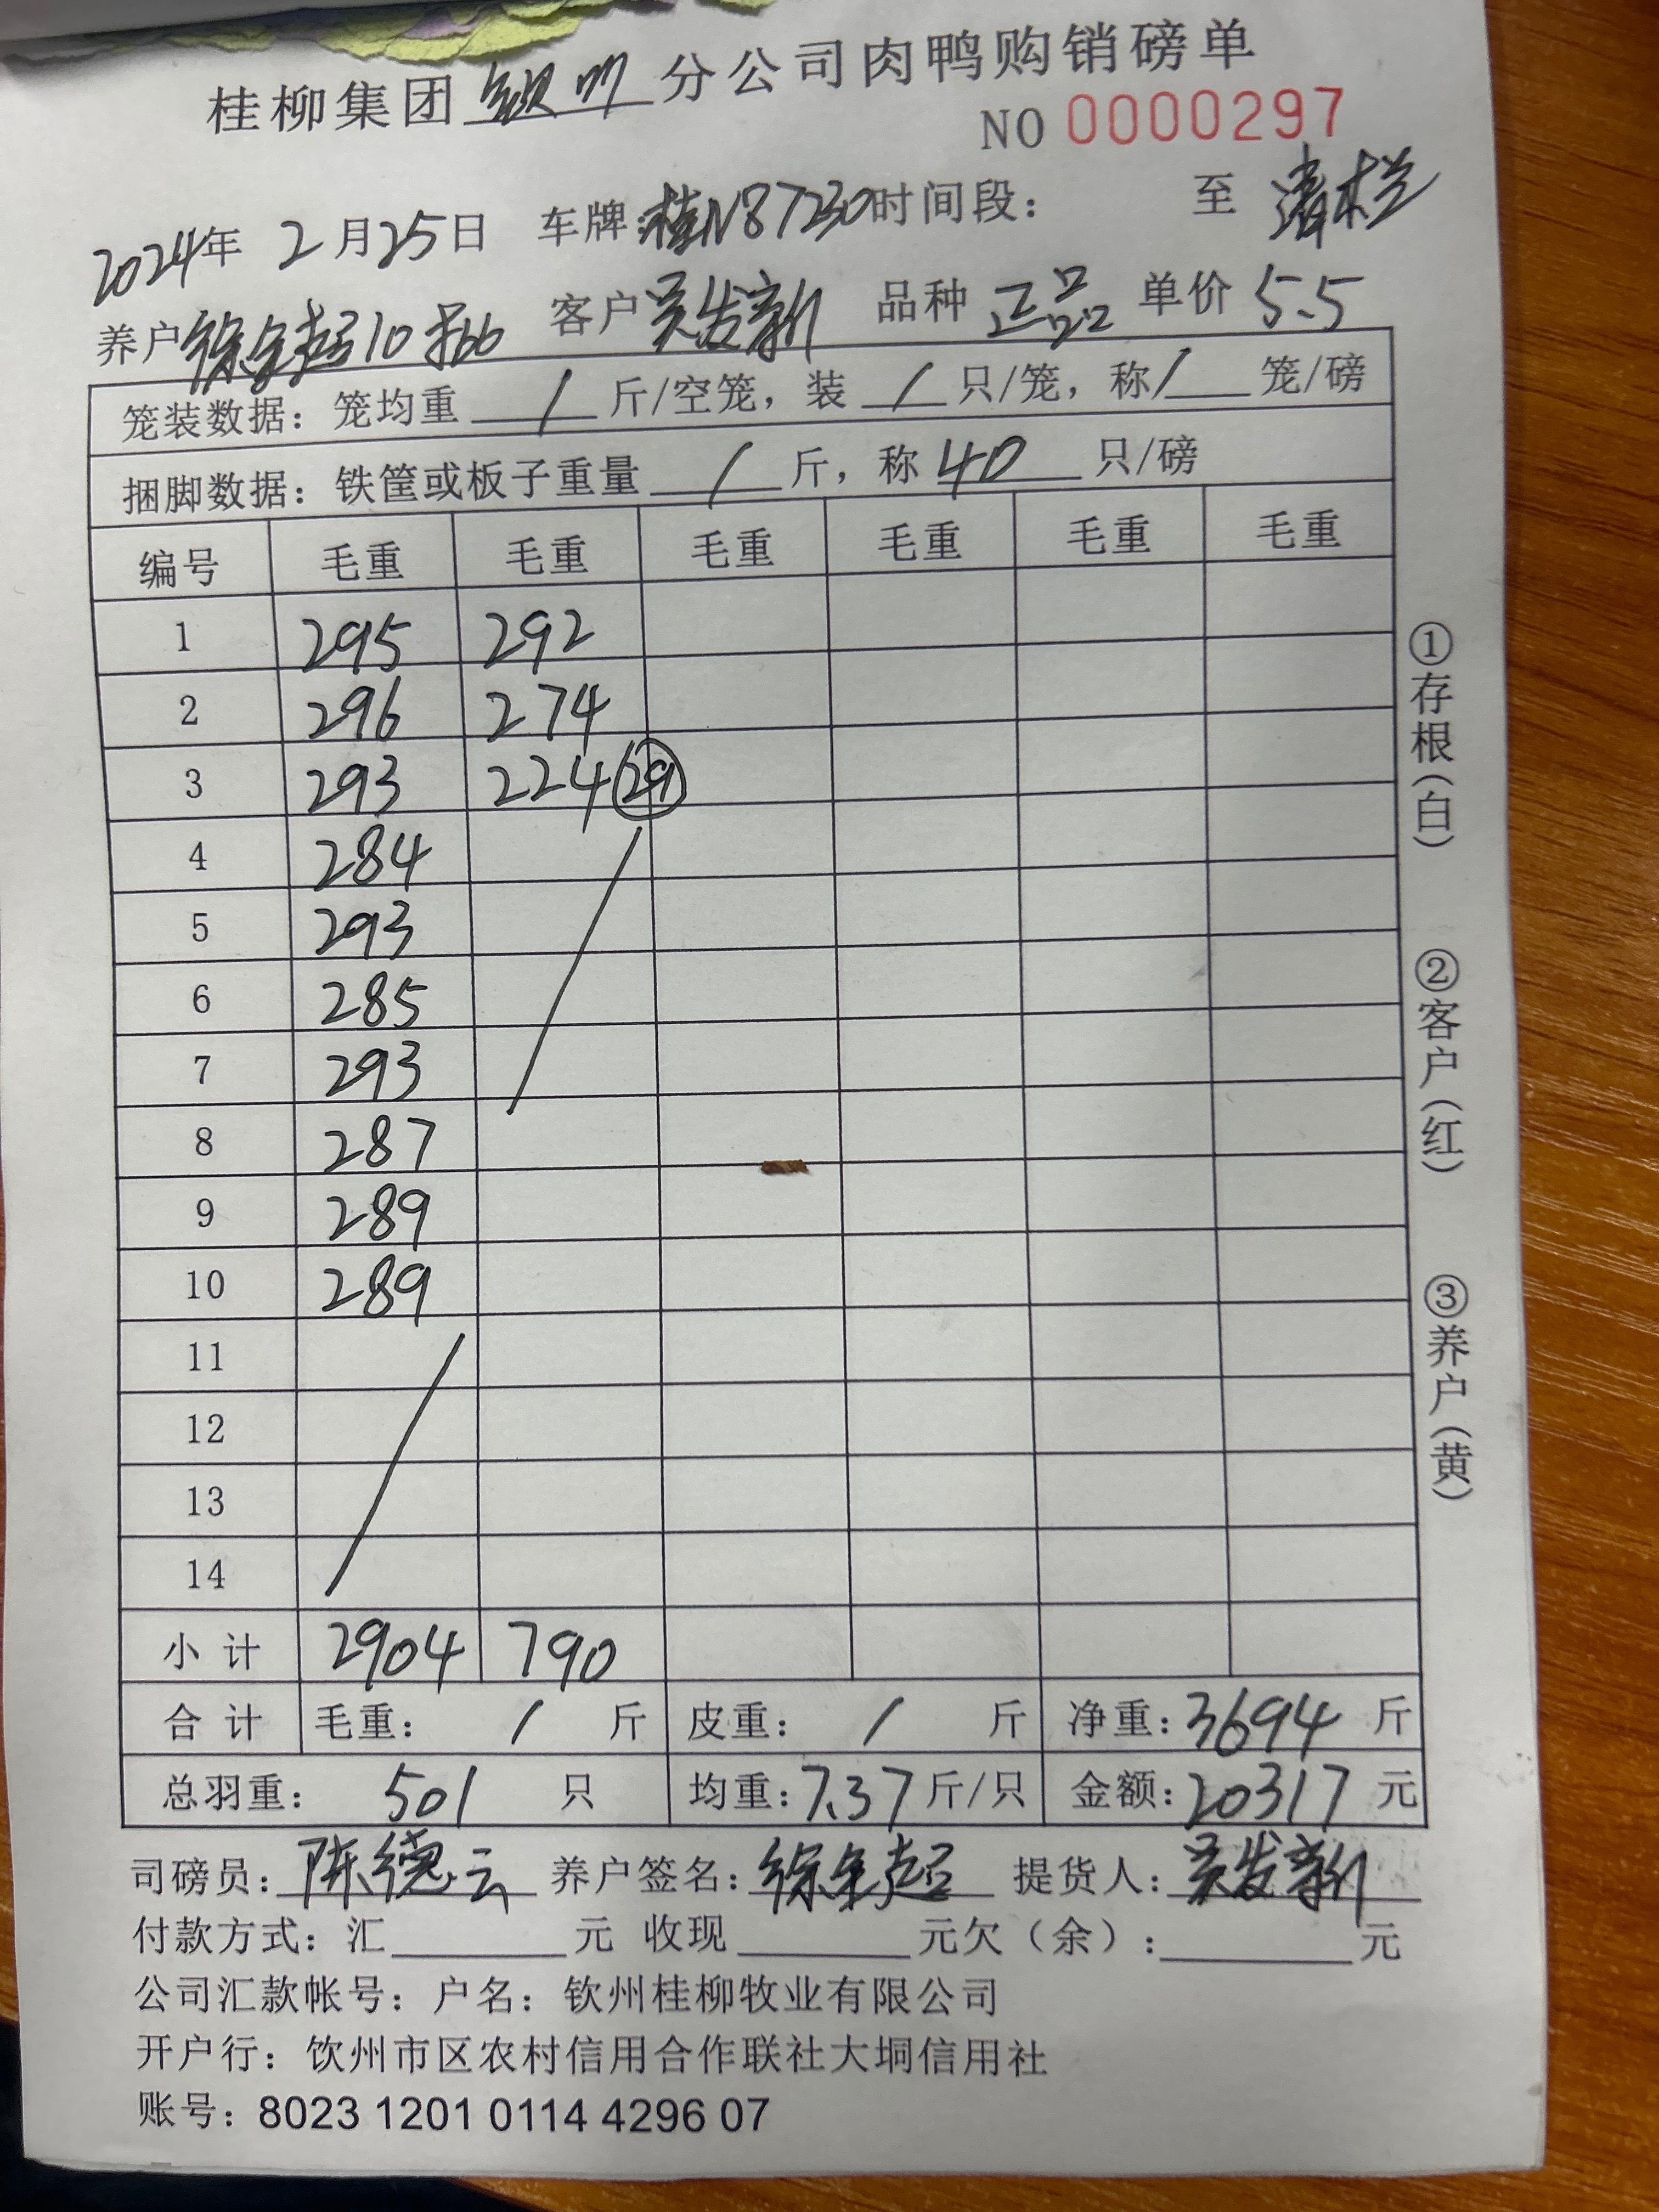 桂柳集团钦州分公司肉鸭购销磅单
NO 0000297
2024年 2月25日 车牌:桂N87230时间段: 至 清栏
养户徐全超10批 客户吴发新 品种 正品 单价 5.5
笼装数据: 笼均重 / 斤/空笼, 装 / 只/笼, 称/ 笼/磅
捆脚数据: 铁筐或板子重量 / 斤, 称 40 只/磅
编号 毛重 毛重 毛重 毛重 毛重 毛重
1 295 292
2 296 274
3 293 224 (29)
4 284
5 293
6 285
7 293
8 287
9 289
10 289
11
12
13
14
小计 2904 790
合计 毛重: / 斤 皮重: / 斤 净重: 3694 斤
总羽重: 501 只 均重: 7.37 斤/只 金额: 20317 元
司磅员: 陈德云 养户签名: 徐全超 提货人: 吴发新
付款方式: 汇 元 收现 元欠(余): 元
公司汇款帐号: 户名: 钦州桂柳牧业有限公司
开户行: 钦州市区农村信用合作联社大垌信用社
账号: 8023 1201 0114 4296 07
①存根(白) ②客户(红) ③养户(黄)